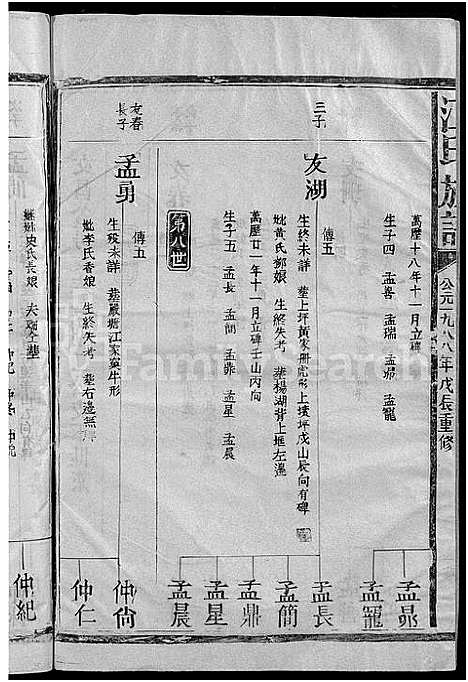 江氏族譜
公元一九八八年戊辰重修
萬歷十八年十一月立碑
生子四 孟喬 孟瑞 孟晜 孟寵
孟晜
孟寵
三子
友湖
傳五
生終未詳 葬上坪黃家冊虎形上墳坪戌山辰向有碑
妣黃氏郁娘 生終失考 葬楊湖背上堰左邊
萬歷廿一年十一月立碑壬山丙向
生子五 孟長 孟簡 孟鼎 孟星 孟晨
孟長
孟簡
孟鼎
孟星
孟晨
第八世
友春
長子
孟勇
傳五
生歿未詳 葬嚴塘江家窠牛形
妣李氏香娘 生終失考 葬右邊無
仲尚
仲仁
繼妣史氏長娘 夫婦今葬
仲紀
FamilySearch